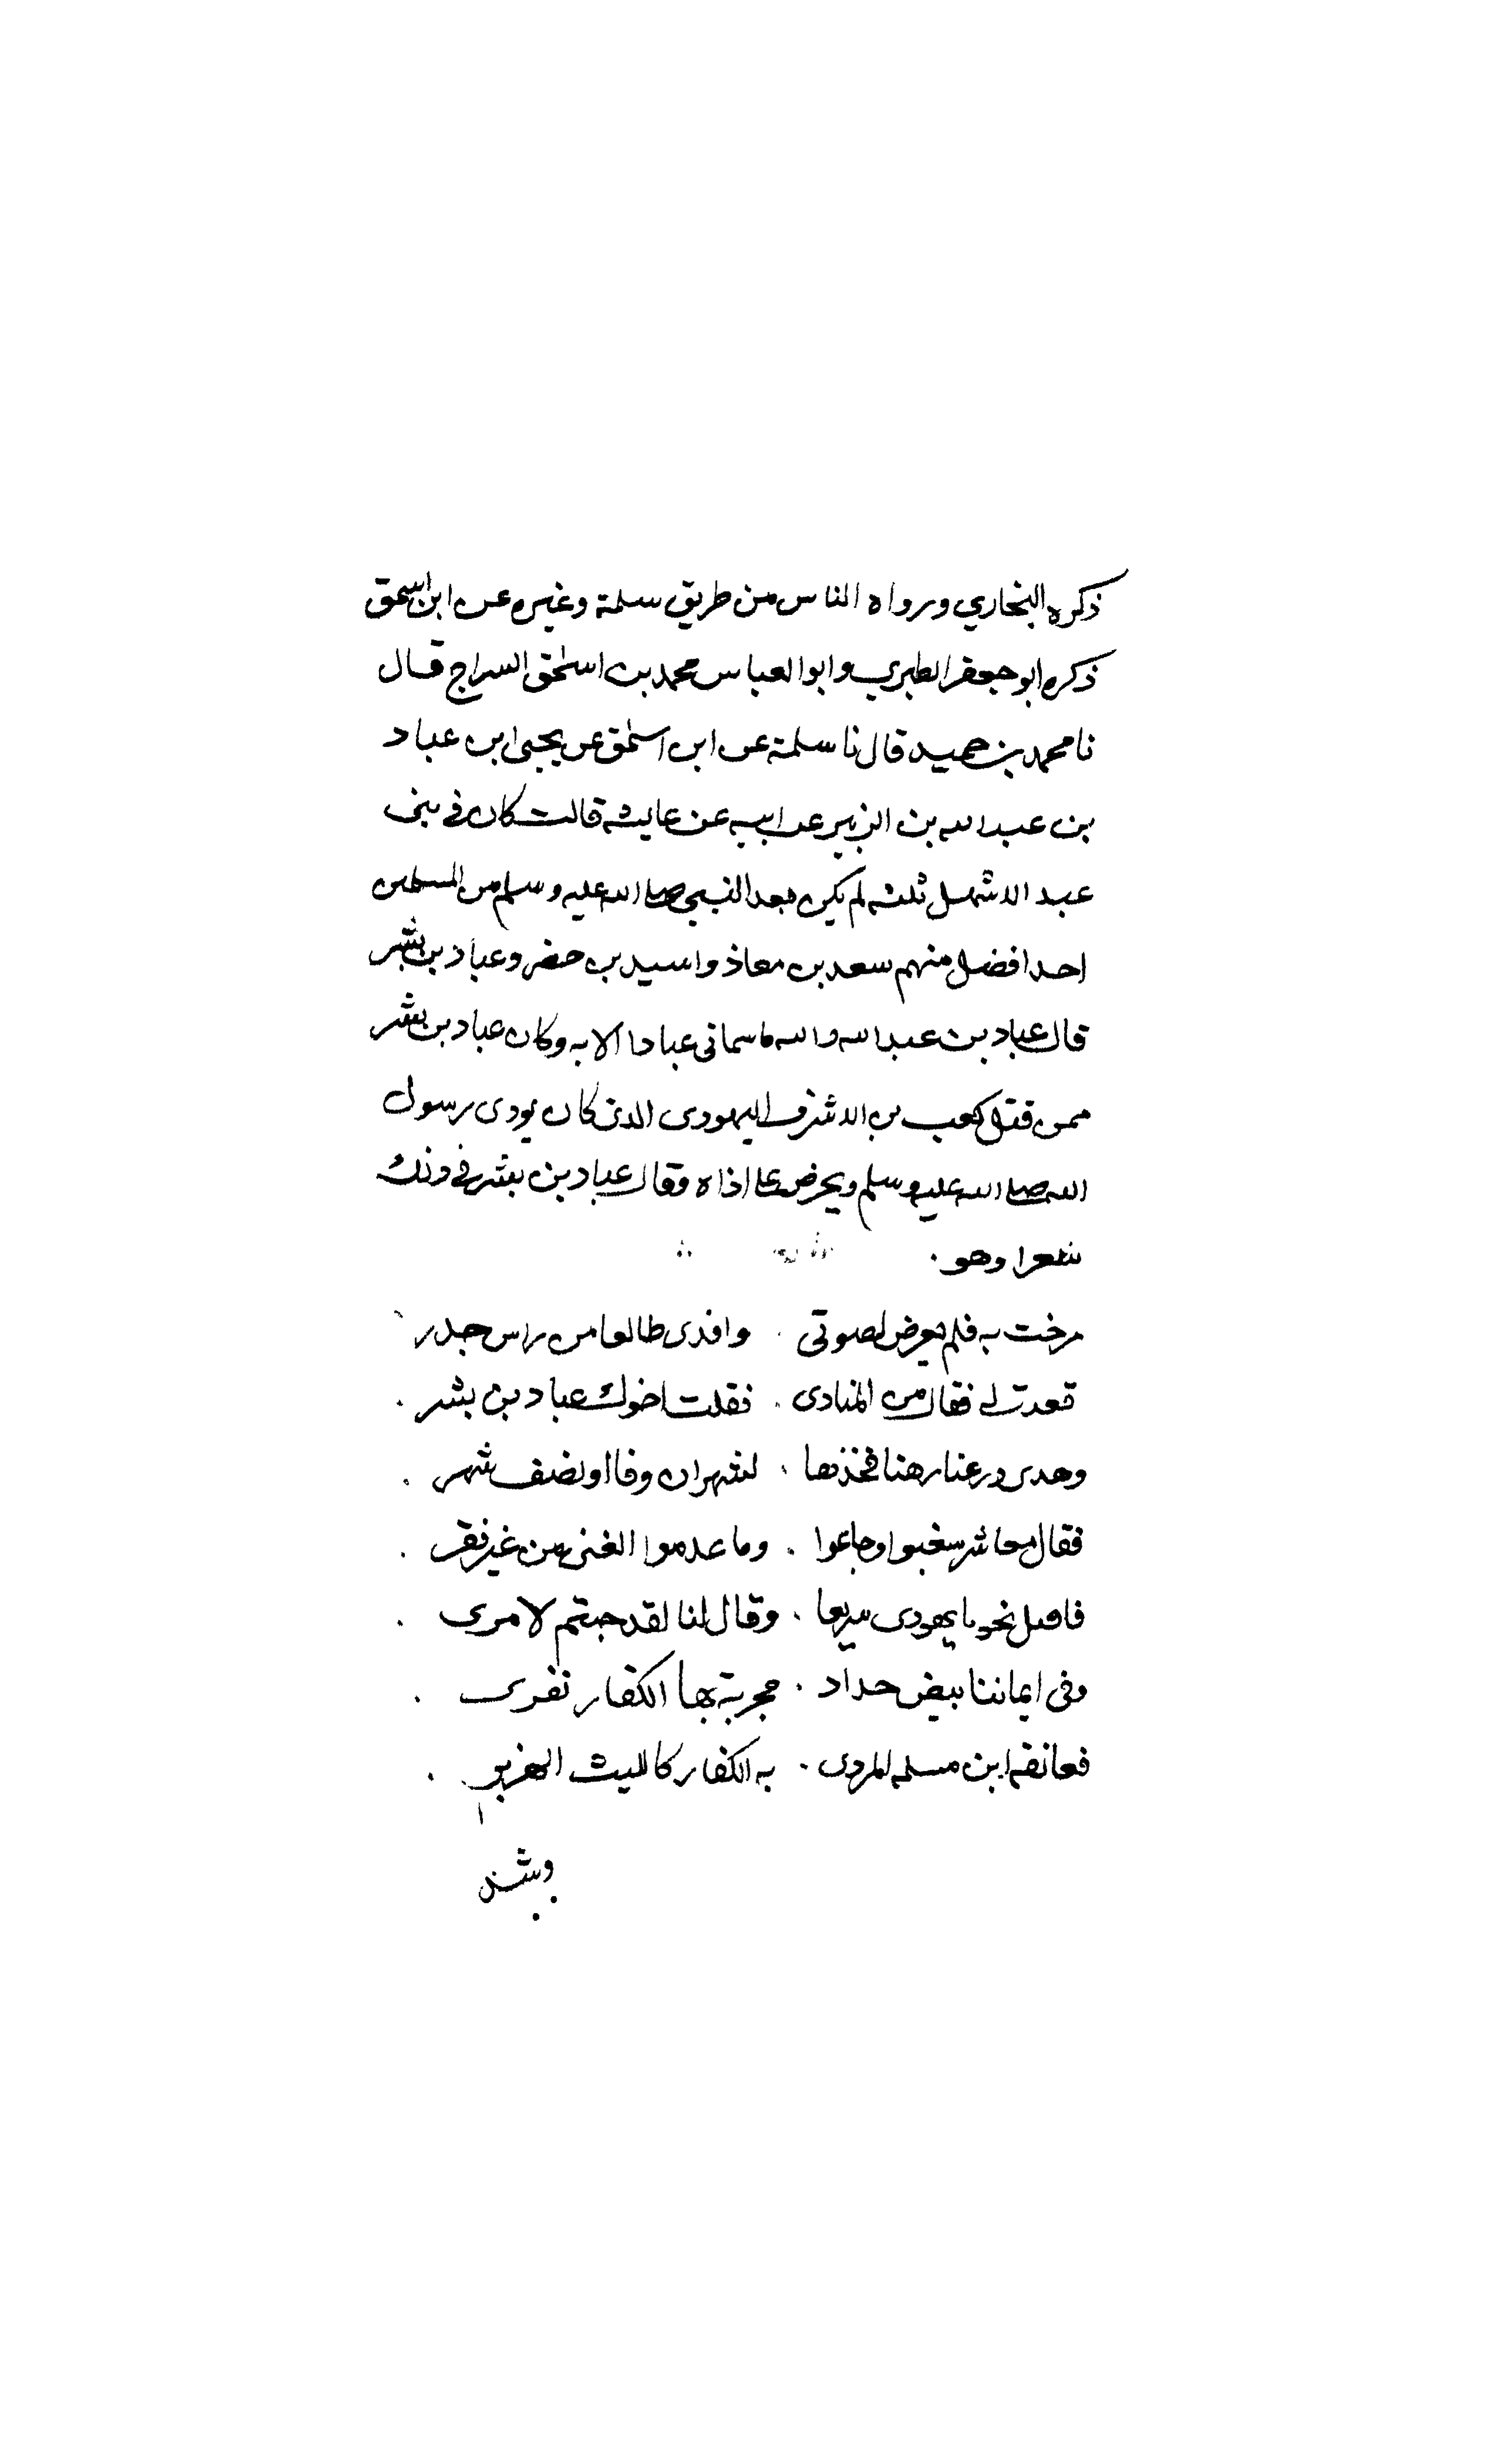 ذكره البخاري ورواه الناس من طريق سلمة وغيره عن ابن اسحق
ذكره ابو جعفر الطبري وابو العباس محمد بن اسحق السراج قال
نا محمد بن حميد قال نا سلمة عن ابن اسحق عن يحيى ابن عباد
بن عبد الله بن الزبير عن ابيه عن عايشه قالت كان في بنى
عبد الاشهل ثلثه لم يكن بعد النبي صلى الله عليه وسلم من المسلمين
احدا افضل منهم سعد بن معاذ واسيد بن حضر وعباد بن بشر
قال عباد بن عبد الله والله ما سمانى عبادا الا به وكان عباد بن بشر
ممن قتل كعب بن الاشرف اليهودى الذى كان يودى رسول
الله صلى الله عليه وسلم ويحرض على اذاه وقال عباد بن بشر فى ذلك
شعرا وهو .
صرخت به فلم يعرض لصوتى . وافدى طالعا من راس جدر
فعدت له فقال من المنادى . فقلت اخوك عباد بن بشر .
وهدى درعنا رهنا فخذها . لشهر ان وفا او نصف شهر .
فقال معاشر سغبوا وجاعوا . وما عدموا الغنى من غير فقر .
فاقبل نحونا يهودى سريعا . وقال لنا لقد جيتم لامرى .
وفى ايماننا بيض حداد . مجربة بها الكفار نفرى .
فعانقه ابن مسلمه المردى . به الكفار كالليث الهزبر .
وشد